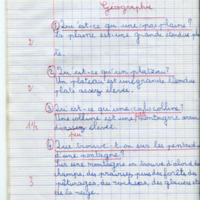 Géographie
① Qu'est-ce qu'une plaine?
La plaine est une grande étendue pla
te.
2
② Qu'est-ce qu'un plateau?
Un plateau est une grande étendue
plate assez élevée.
2
③ Qu'est-ce qu'une colline?
Une colline est une montagne
élevée.
peu
1½
④ Que trouve-t-on sur les pentes
d'une montagne?
Sur une montagne on trouve d'abord des
champs, des prairies, puis des forêts, des
pâturages, des rochers, des glaciers et
de la neige.
3